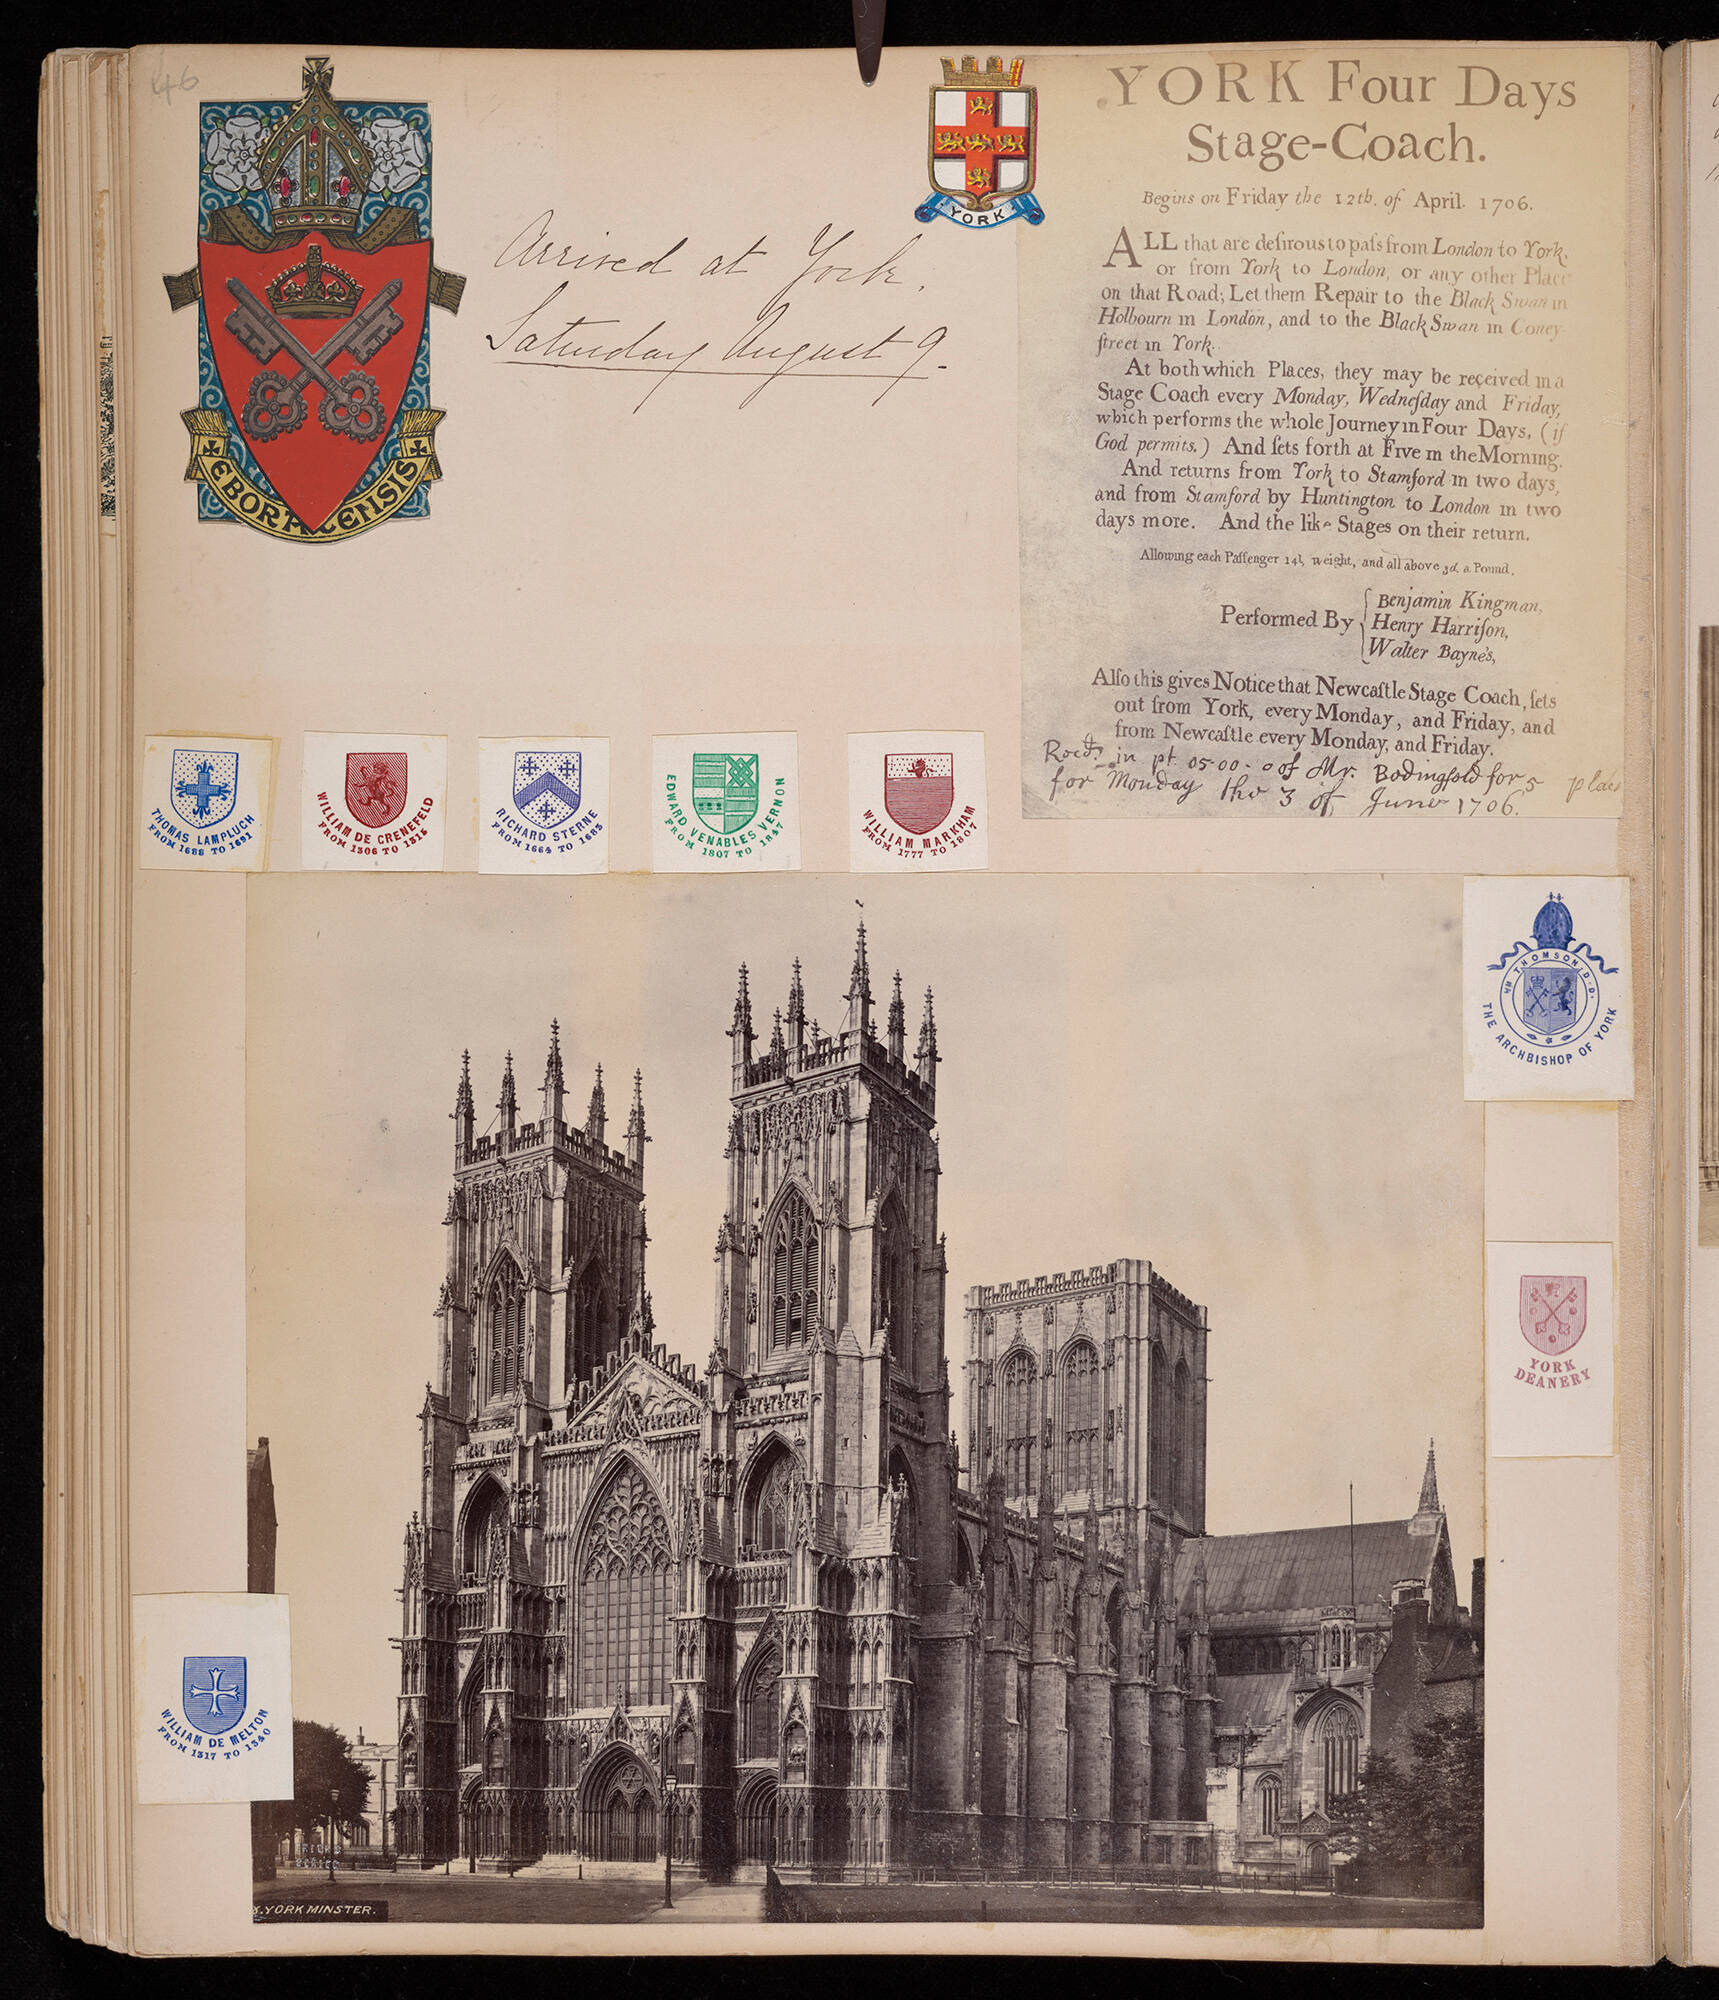 46
EBORACENSIS
Arrived at York.
Saturday August 9.
YORK
YORK Four Days
Stage-Coach.
Begins on Friday the 12th. of April. 1706.
ALL that are deſirous to paſs from London to York,
or from York to London, or any other Place
on that Road; Let them Repair to the Black Swan in
Holbourn in London, and to the Black Swan in Coney
ſtreet in York.
At both which Places, they may be received in a
Stage Coach every Monday, Wedneſday and Friday,
which performs the whole Journey in Four Days, (if
God permits.) And ſets forth at Five in the Morning.
And returns from York to Stamford in two days,
and from Stamford by Huntington to London in two
days more. And the like Stages on their return.
Allowing each Paſſenger 14l, weight, and all above 3d. a Pound.
Performed By
Benjamin Kingman,
Henry Harriſon,
Walter Bayne's,
Alſo this gives Notice that Newcaſtle Stage Coach, ſets
out from York, every Monday, and Friday, and
from Newcaſtle every Monday, and Friday.
in pt. 05.00.0 of Mr. Bodingfold for 5
for Monday the 3 of June 1706.
THOMAS LAMPLUCH
FROM 1688 TO 1691
WILLIAM DE CRENEFELD
FROM 1306 TO 1315
RICHARD STERNE
FROM 1664 TO 1683
EDWARD VENABLES VERNON
FROM 1807 TO 1847
WILLIAM MARKHAM
FROM 1777 TO 1807
WM THOMSON. D.D.
THE ARCHBISHOP OF YORK
YORK
DEANERY
WILLIAM DE MELTON
FROM 1317 TO 1340
SERIES
YORK MINSTER.